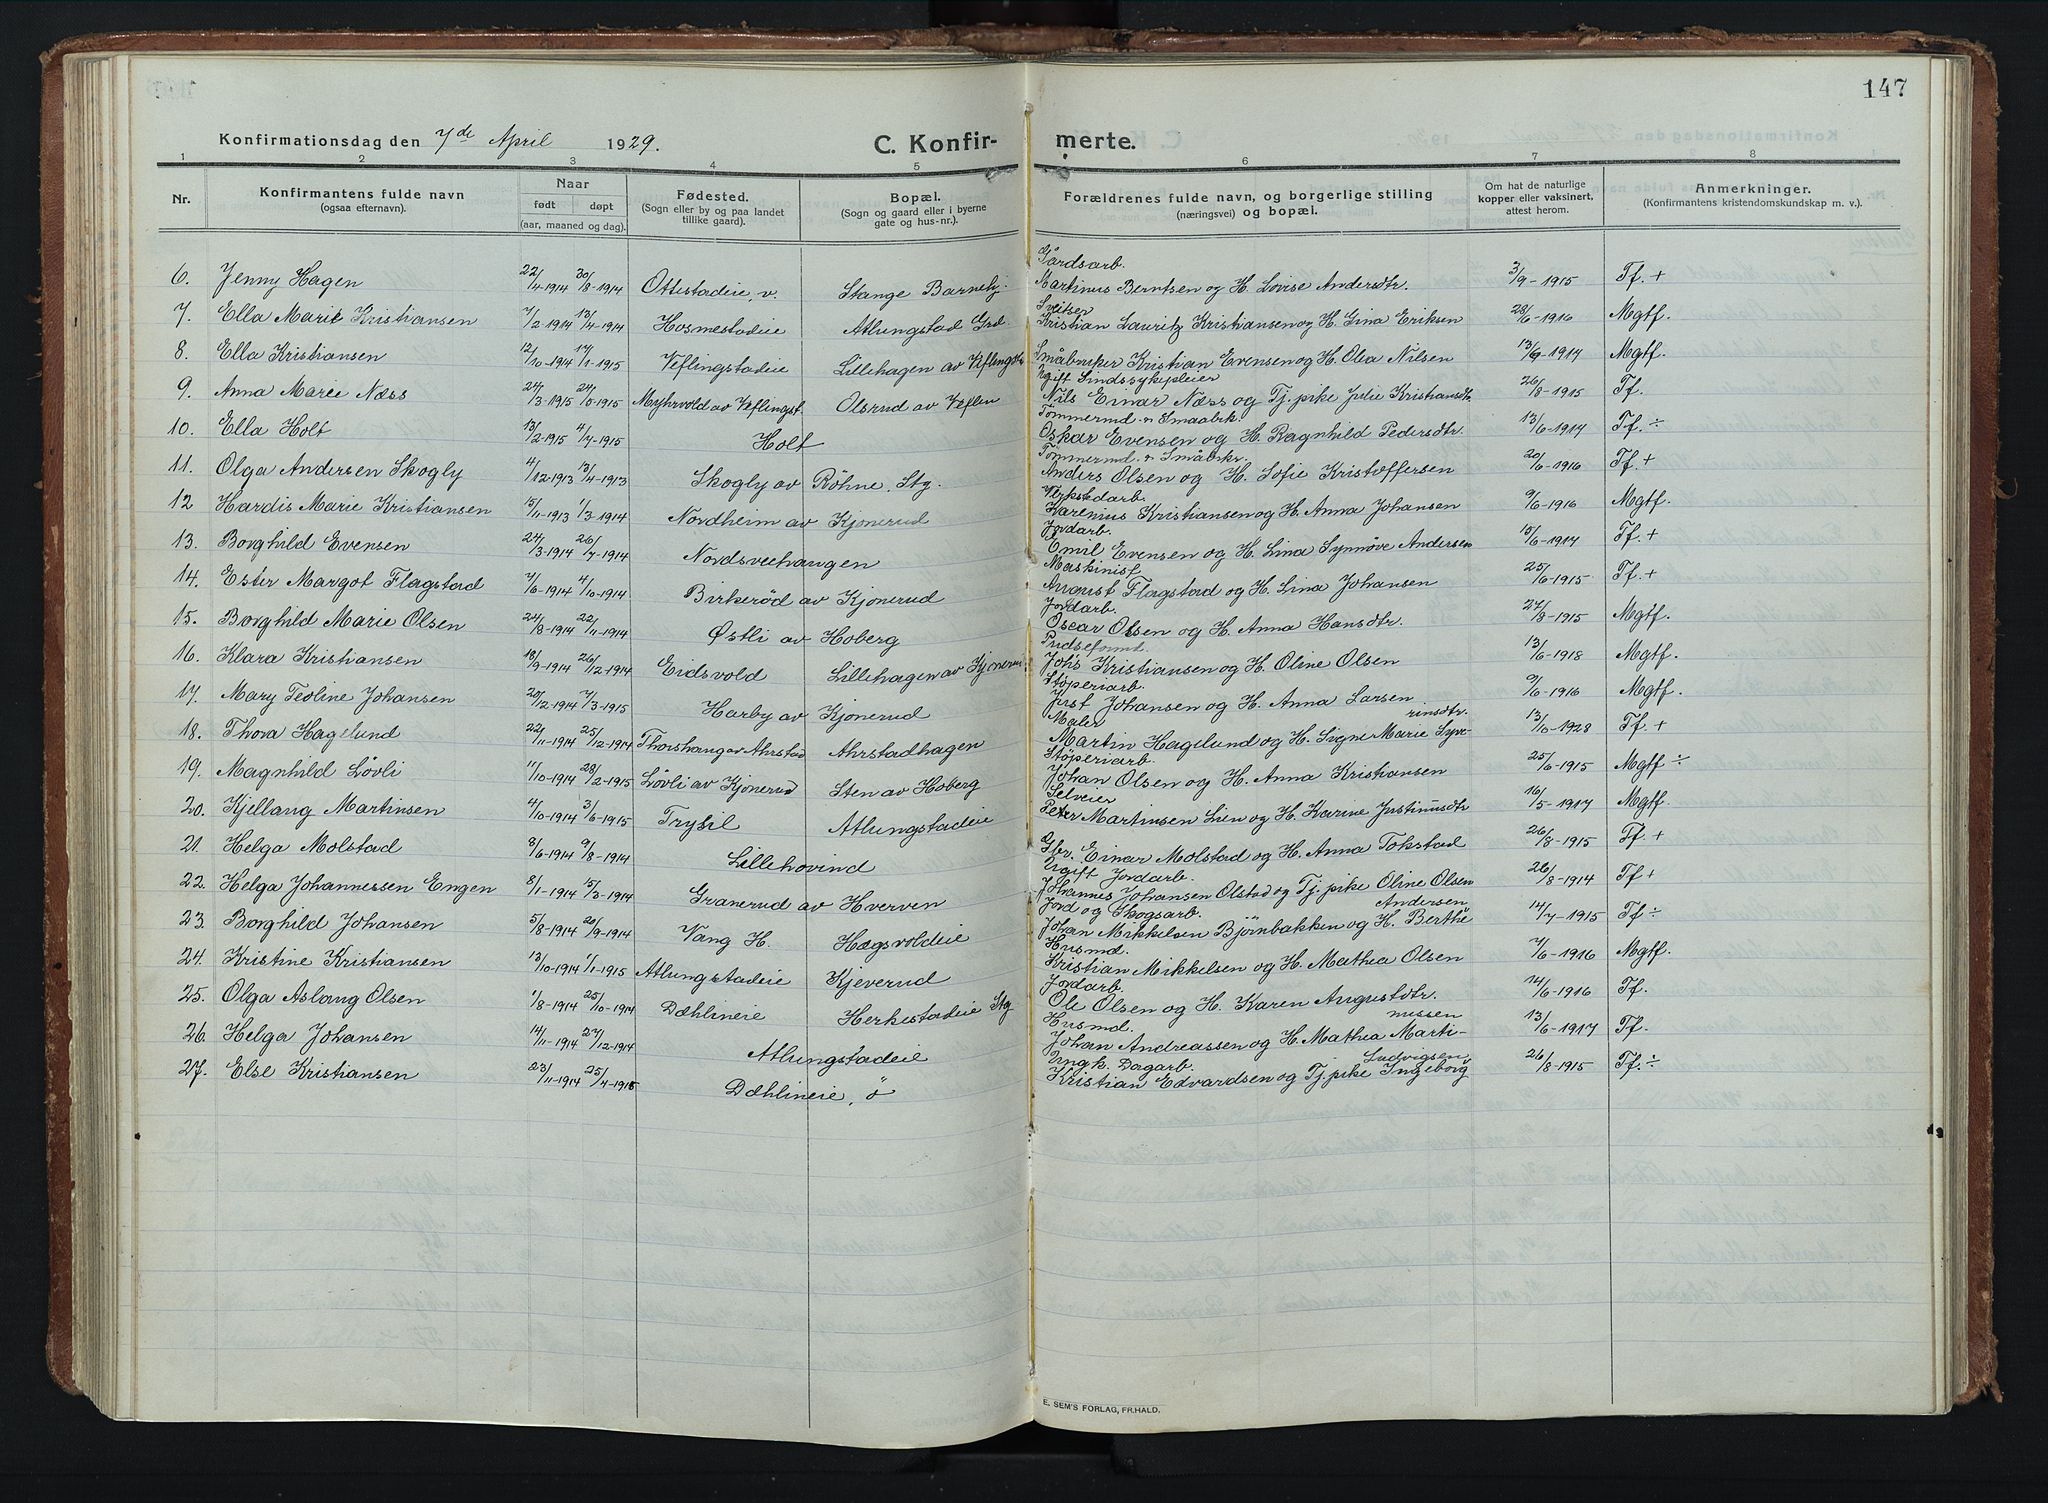 147
Konfirmationsdag den 7de April 1929.
C. Konfir- merte.
1 2 3 4 5 6 7 8
Nr.
Konfirmantens fulde navn
(ogsaa efternavn).
Naar
født døpt
(aar, maaned og dag).
Fødested.
(Sogn eller by og paa landet
tillike gaard).
Bopæl.
(Sogn og gaard eller i byerne
gate og hus-nr.).
Forældrenes fulde navn, og borgerlige stilling
(næringsvei) og bopæl.
Om hat de naturlige
kopper eller vaksinert,
attest herom.
Anmerkninger.
(Konfirmantens kristendomskundskap m. v.).
Gårdsarb.
6. Jenny Hagen 22/4-1914 30/8-1914 Ottestadeie, v. Stange Barnehj. Martinus Berntsen og H. Lovise Andersdtr. 3/9-1915 Tf. +
Sveitser
7. Ella Marie Kristiansen 7/2-1914 13/4-1914 Hosmestadeie Atlungstad Grd. Kristian Lauritz Kristiansen og H. Gina Eriksen 28/6-1916 Mgtf.
8. Ella Kristiansen 12/10-1914 17/1-1915 Veflingstadeie Lillehagen av Veflingsta Småbruker Kristian Evensen og H. Olea Nilsen 13/9-1917 Mgtf.
Ugift Sindssykepleier
9. Anna Marie Næss 24/3-1915 24/5-1915 Myhrvold av Veflingst. Olsrud av Veflen Nils Einar Næss og Tj. pike Julie Kristiansdtr. 26/8-1915 Tf.
Tømmermd. & Smaabrk.
10. Ella Holt 13/2-1915 4/7-1915 Holt Oskar Evensen og H. Ragnhild Pedersdtr. 13/6-1917 Tf. ÷
Tømmermd. & Småbrkr.
11. Olga Andersen Skogly 4/12-1913 13/4-1913 Skogly av Röhne, Stg. Anders Olsen og H. Sofie Kristoffersen 20/6-1916 Tf. +
Verkstedarb.
12 Hardis Marie Kristiansen 15/11-1913 1/3-1914 Nordheim av Kjonerud Karenius Kristiansen og H. Anna Johansen 9/6-1916 Mgtf.
Jordarb.
13. Borghild Evensen 24/3-1914 26/7-1914 Nordsveehaugen Emil Evensen og H. Lina Synnöve Andersen 15/6-1917 Tf. +
Maskinist
14. Ester Margot Flagstad 7/6-1914 4/10-1914 Birkeröd av Kjonerud August Flagstad og H. Lina Johansen 25/6-1915 Tf. +
Jordarb.
15. Borghild Marie Olsen 24/8-1914 22/11-1914 Østli av Hoberg Oscar Olsen og H. Anna Hansdtr. 27/8-1915 Mgtf.
16. Klara Kristiansen 18/9-1914 26/12-1914 Eidsvold Lillehagen av Kjoneru Johs Kristiansen og H. Oline Olsen 13/6-1918 Mgtf.
Støperiarb.
17. Mary Teoline Johansen 20/12-1914 7/3-1915 Harby av Kjonerud Just Johansen og H. Anna Larsen 9/6-1916 Mgtf.
Maler rinsdtr.
18. Thora Hagelund 22/11-1914 25/12-1914 Thorshaug av Ahrstad Ahrstadhagen Martin Hagelund og H. Signe Marie Syve- 13/10-1928 Tf. +
Støperiarb.
19. Magnhild Lövli 11/10-1914 28/2-1915 Lövli av Kjonerud Sten av Hoberg Johan Olsen og H. Anna Kristiansen 25/6-1915 Mgtf ÷
Selveier
20. Kjellaug Martinsen 4/10-1914 3/6-1915 Trysil Atlungstadeie Peter Martinsen Lien og H. Karine Justinusdtr 16/5-1917 Mgtf.
21. Helga Molstad 8/6-1914 9/8-1914 Lillehovind Gbr. Einar Molstad og H. Anna Tokstad 26/8-1915 Tf. +
Ugift Jordarb.
22. Helga Johannessen Engen 8/1-1914 15/3-1914 Granerud av Hverven Johannes Johansen Olstad og Tj. pike Oline Olsen 26/8-1914 Tf +
Jord og Skogsarb. Andersen
23. Borghild Johansen 5/8-1914 20/9-1914 Vang H. Hægsvoldeie Johan Mikkelsen Björnbakken og H. Berthe 14/7-1915 Tf ÷
Husmd.
24. Kristine Kristiansen 13/10-1914 1/1-1915 Atlungstadeie Kjeverud Kristian Mikkelsen og H. Mathea Olsen 7/6-1916 Mgtf.
Jordarb.
25. Olga Aslaug Olsen 1/8-1914 25/10-1914 Dæhlineie Herkestadeie Stg Ole Olsen og H. Karen Augustdtr. 14/6-1916 Tf.
Husmd. nussen
26. Helga Johansen 14/11-1914 27/12-1914 Atlungstadeie Johan Andreassen og H. Mathea Marti- 13/6-1917 Tf.
Ungk. Dagarb. Ludvigsen
27. Else Kristiansen 23/11-1914 25/4-1915 Dæhlineie, ö Kristian Edvardsen og Tj. pike Ingeborg 26/8-1915 Tf. ÷
E. SEM'S FORLAG, FR.HALD.